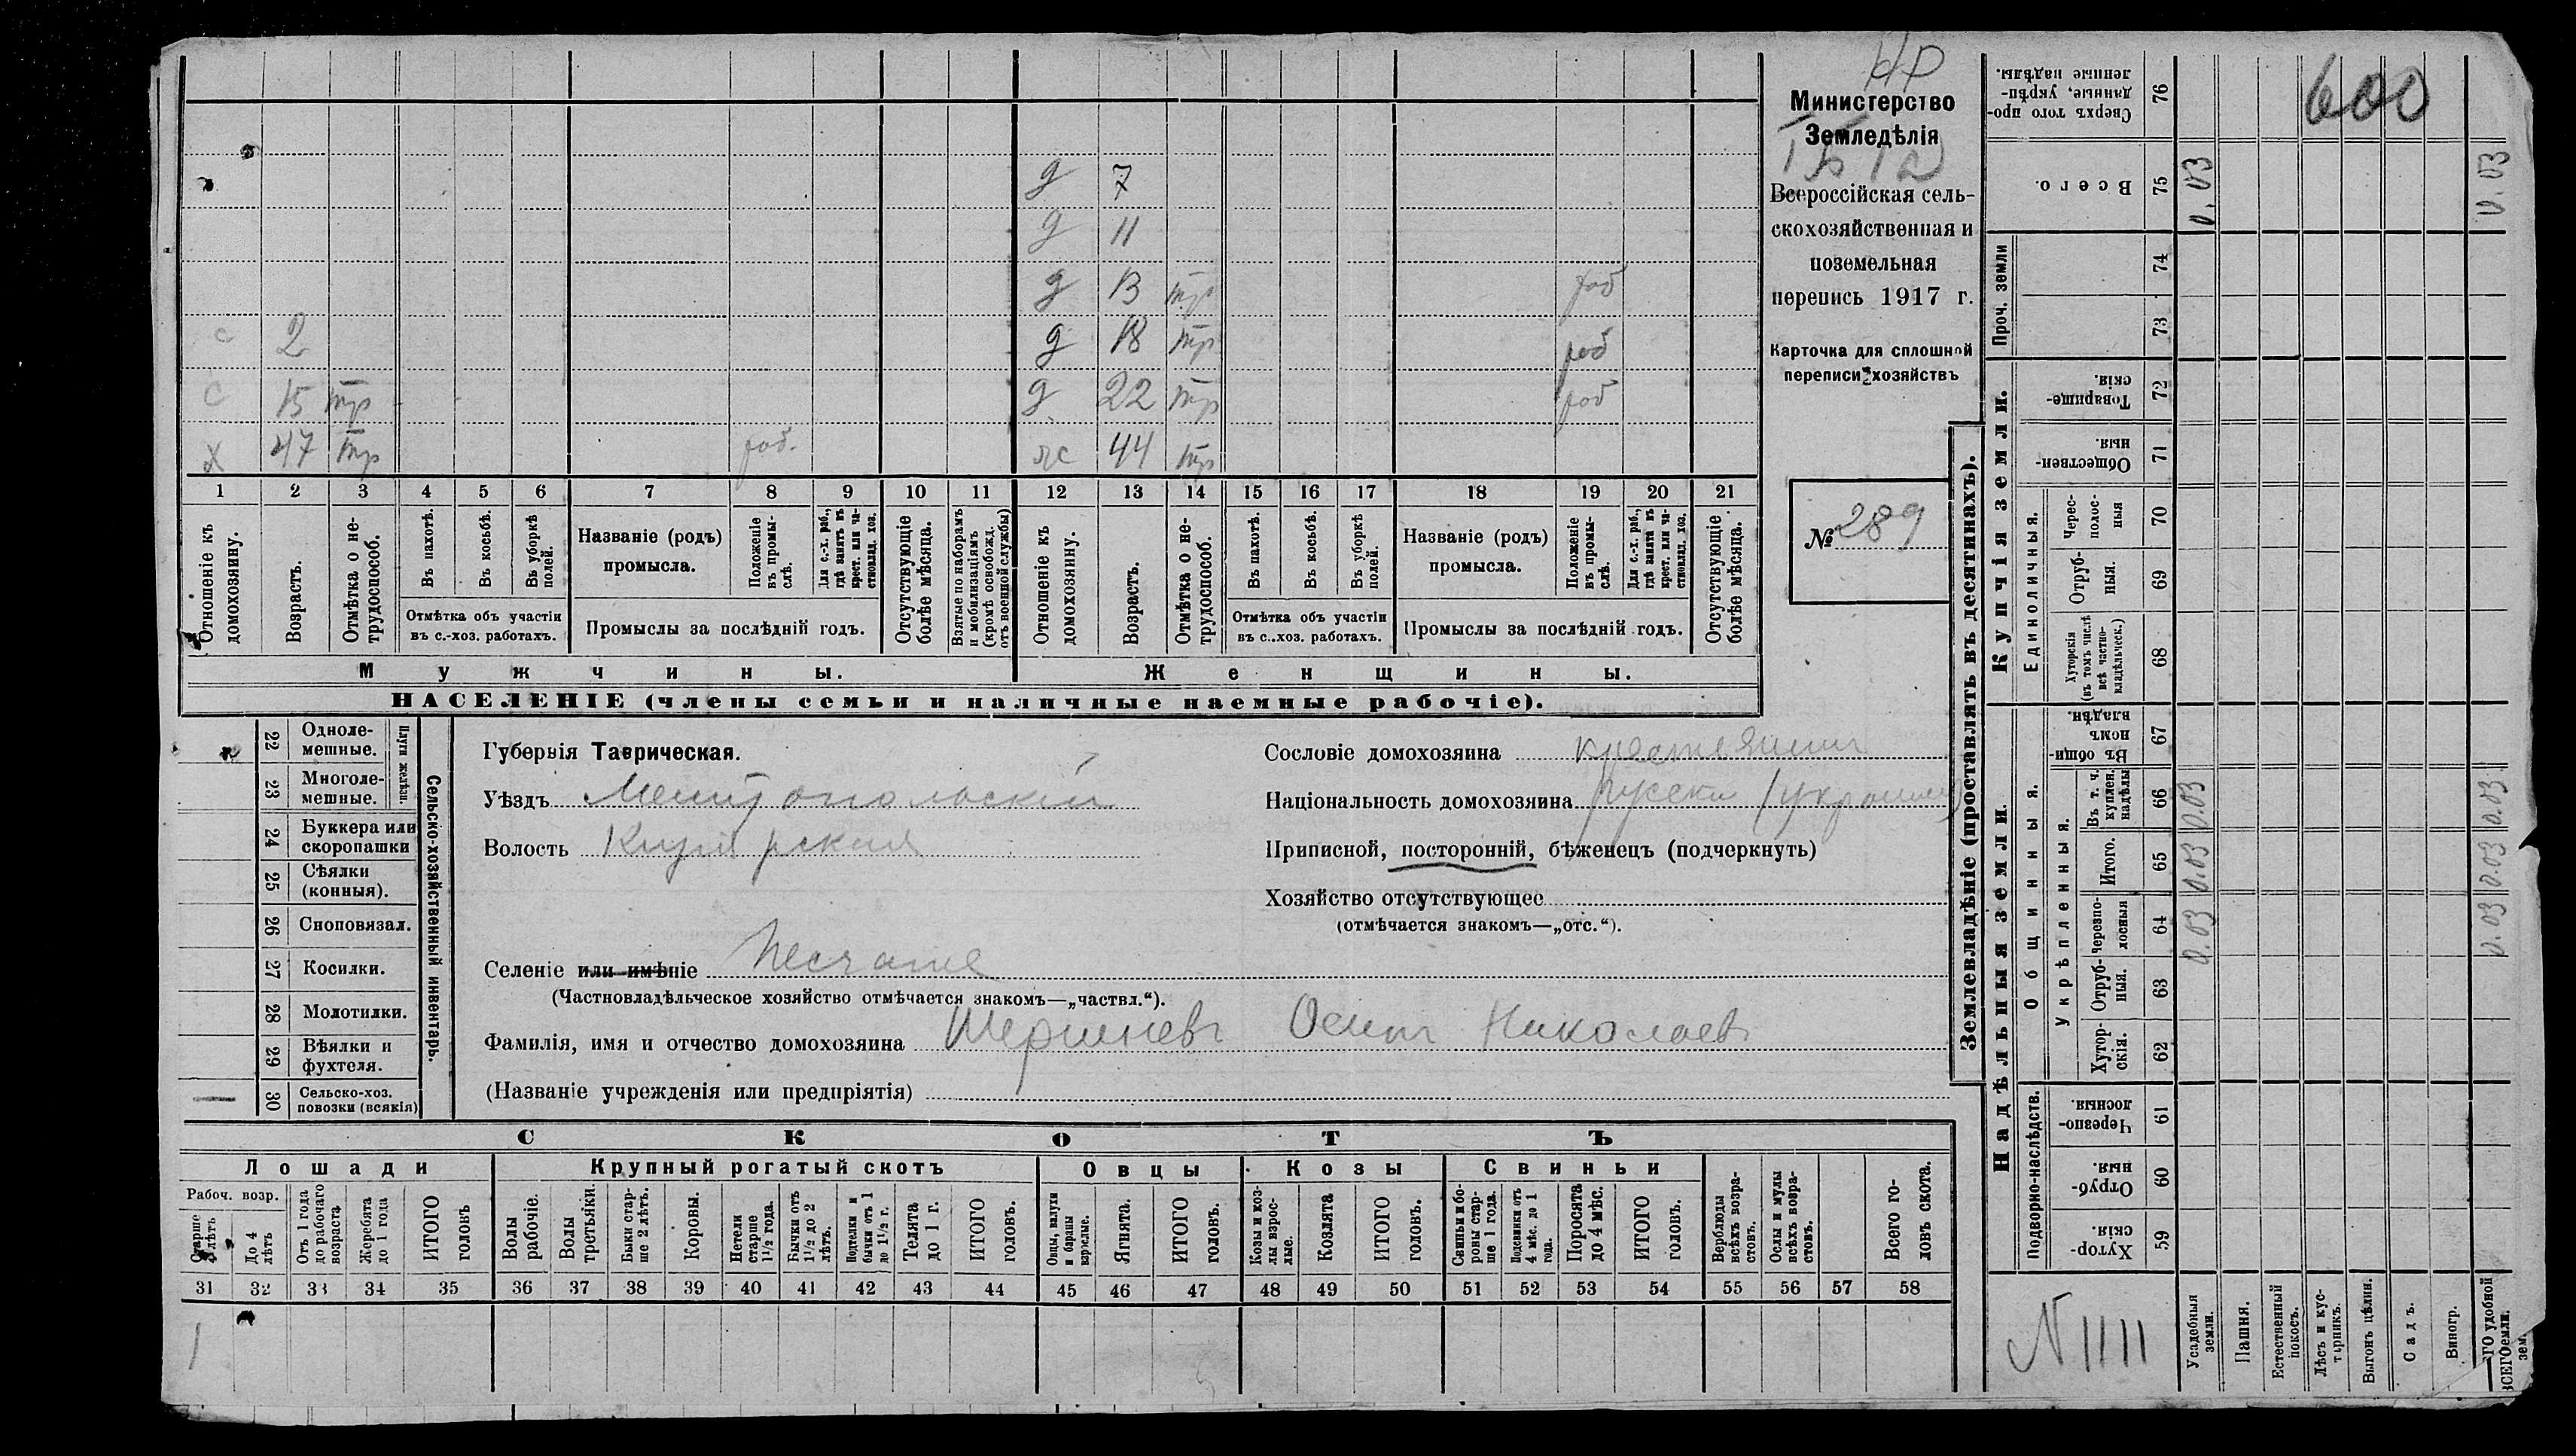 НР
Министерство
Земледѣлія
Всероссійская сель-
скохозяйственная и
поземельная
перепись 1917 г.
Карточка для сплошной
переписи хозяйствъ
№ 289
д 7
д 11
д 13 тр раб
с 2 д 18 тр раб
с 15 тр д 22 тр раб
х 47 тр раб. ж 44 тр
1 2 3 4 5 6 7 8 9 10 11 12 13 14 15 16 17 18 19 20 21
Отношеніе къ домохозяину.
Возрастъ.
Отмѣтка о не-трудоспособ.
Въ пахотѣ.
Въ косьбѣ.
Въ уборкѣ полей.
Отмѣтка объ участіи въ с.-хоз. работахъ.
Названіе (родъ) промысла.
Положеніе въ промы-слѣ.
Для с.-х. раб., гдѣ занятъ въ крест. или ча-стновлад. хоз.
Промыслы за послѣдній годъ.
Отсутствующіе болѣе мѣсяца.
Взятые по наборамъ и мобилизаціямъ (кромѣ освобожд. отъ военной службы)
Отношеніе къ домохозяину.
Возрастъ.
Отмѣтка о не-трудоспособ.
Въ пахотѣ.
Въ косьбѣ.
Въ уборкѣ полей.
Отмѣтка объ участіи въ с.-хоз. работахъ.
Названіе (родъ) промысла.
Положеніе въ промы-слѣ.
Для с.-х. раб., гдѣ занята въ крест. или ча-стновлад. хоз.
Промыслы за послѣдній годъ.
Отсутствующіе болѣе мѣсяца.
Мужчины. Женщины.
НАСЕЛЕНІЕ (члены семьи и наличные наемные рабочіе).
22 Одноле-мешные.
23 Многоле-мешные.
Плуги желѣзн.
24 Буккера или скоропашки
25 Сѣялки (конныя).
26 Сноповязал.
27 Косилки.
28 Молотилки.
29 Вѣялки и фухтеля.
30 Сельско-хоз. повозки (всякія)
Сельско-хозяйственный инвентарь.
Губернія Таврическая.
Уѣздъ Мелитопольскій
Волость
Селеніе или имѣніе
(Частновладѣльческое хозяйство отмѣчается знакомъ—„частвл.“).
Фамилія, имя и отчество домохозяина Осипъ Николаевъ
(Названіе учрежденія или предпріятія)
Сословіе домохозяина крестьянинъ
Національность домохозяина
Приписной, посторонній, бѣженецъ (подчеркнуть)
Хозяйство отсутствующее
(отмѣчается знакомъ—„отс.“).
СКОТЪ
Лошади Крупный рогатый скотъ Овцы Козы Свиньи
Рабоч. возр.
Старше 4 лѣтъ
До 4 лѣтъ
Отъ 1 года до рабочаго возраста
Жеребята до 1 года
ИТОГО головъ
Волы рабочіе.
Волы третьяки.
Быки стар-ше 2 лѣтъ.
Коровы.
Нетели старше 1½ года.
Бычки отъ 1½ до 2 лѣтъ.
Подтелки и бычки отъ 1 до 1½ г.
Телята до 1 г.
ИТОГО головъ.
Овцы, валухи и бараны взрослые.
Ягнята.
ИТОГО головъ.
Козы и коз-лы взрос-лые.
Козлята
ИТОГО головъ.
Свиньи и бо-ровы стар-ше 1 года.
Подсвинки отъ 4 мѣс. до 1 года.
Поросята до 4 мѣс.
ИТОГО головъ.
Верблюды всѣхъ возра-стовъ.
Ослы и мулы всѣхъ возра-стовъ.
Всего го-ловъ скота.
31 32 33 34 35 36 37 38 39 40 41 42 43 44 45 46 47 48 49 50 51 52 53 54 55 56 57 58
1
Землевладѣніе (проставлять въ десятинахъ).
Надѣльныя земли. Купчія земли. Проч. земли
Подворно-наслѣдств.
Общинныя.
Укрѣпленныя.
Единоличныя.
Хутор-скія. 59
Отруб-ныя. 60
Черезпо-лосныя. 61
Хутор-скія. 62
Отруб-ныя. 63
Черезпо-лосныя 64
Итого. 65
Въ т. ч. куплен. надѣлы 66
Въ общи-номъ владѣн. 67
Хуторскія (въ томъ числѣ всѣ частно-владѣльческ.) 68
Отруб-ныя. 69
Черес-полос-ныя 70
Обществен-ныя. 71
Товарище-скія. 72
73
74
Всего. 75
Сверхъ того про-данные, укрѣп-ленные надѣлы. 76
Усадебныя земли. 0.03 0.03 0.03 0.03
Пашня.
Естественный покосъ.
Лѣсъ и кус-тарникъ.
Выгонъ цѣлин.
Садъ.
Виногр.
0.03 0.03 0.03 0.03
600
N 1111